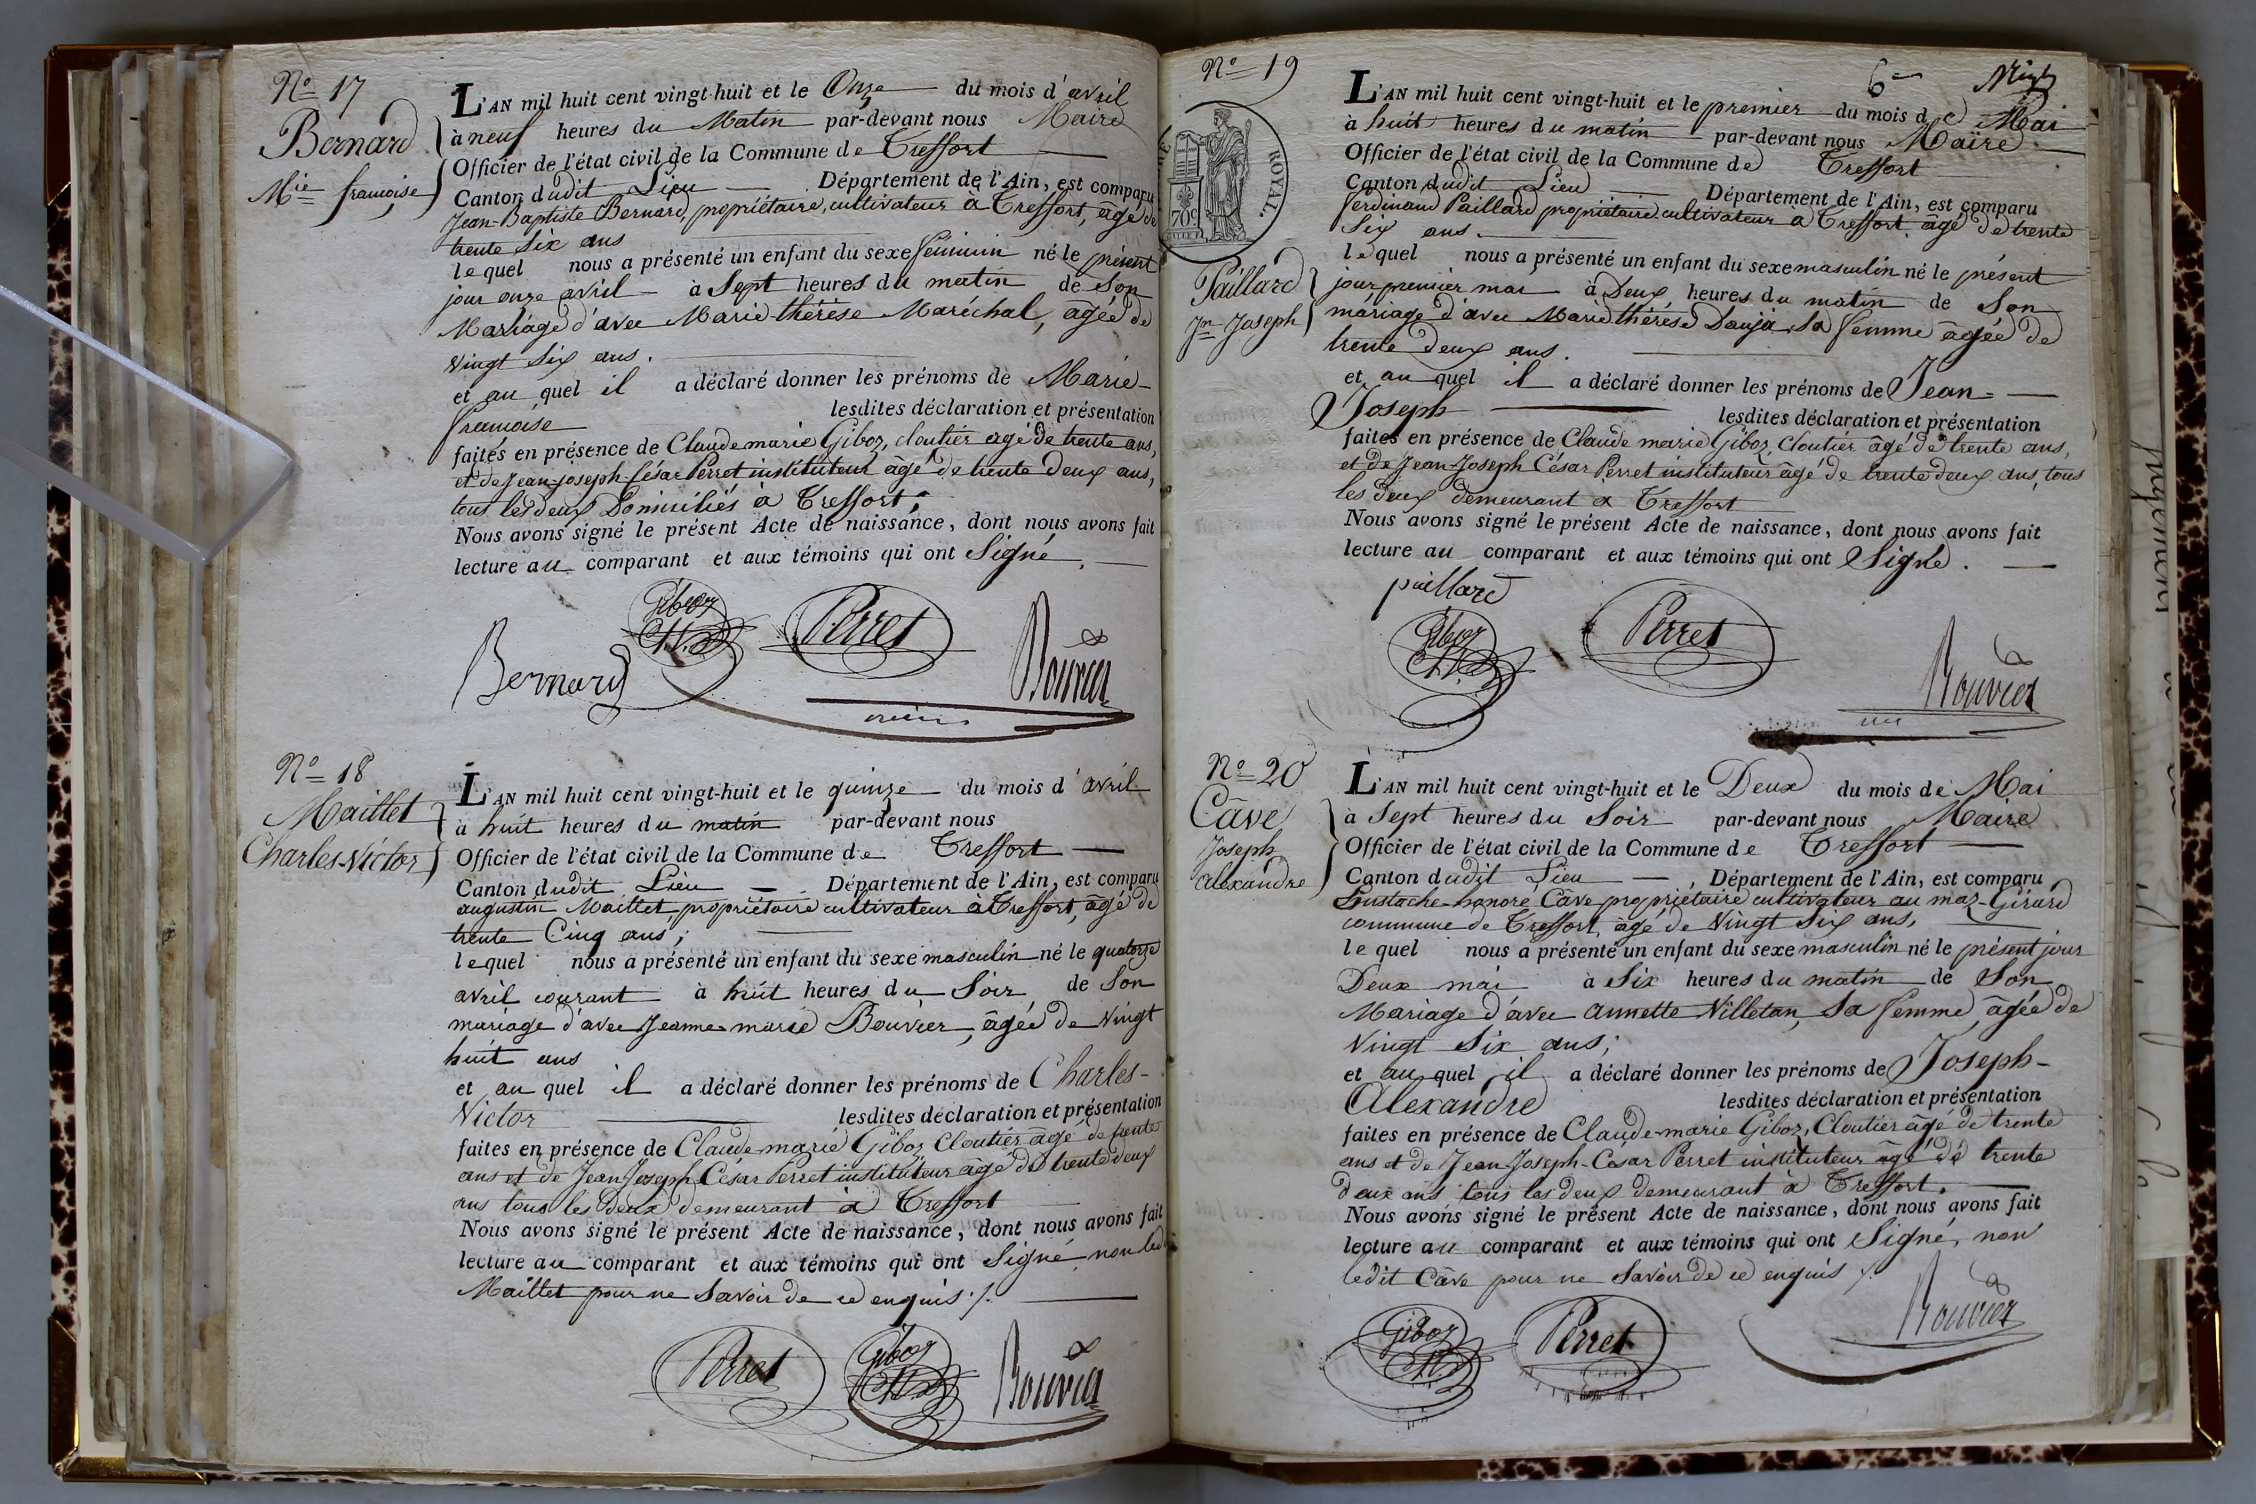 N° 17
Bernard
Mie françoise
L'AN mil huit cent vingt-huit et le Onze du mois d'avril
à neuf heures du Matin par-devant nous Maire
Officier de l'état civil de la Commune de Treffort
Canton dudit Lieu Département de l'Ain, est comparu
Jean-Baptiste Bernard, propriétaire, cultivateur à Treffort, âgé de
trente Six ans
lequel nous a présenté un enfant du sexe féminin né le présent
jour onze avril à Sept heures du matin de Son
Mariage d'avec Marie-thérèse Maréchal, âgée de
Vingt Six ans.
et au quel il a déclaré donner les prénoms de Marie-
françoise lesdites déclaration et présentation
faites en présence de Claude marie Giboz, cloutier agé de trente ans,
et de Jean-joseph-César Perret instituteur âgé de trente deux ans,
tous les deux Domiciliés à Treffort;
Nous avons signé le présent Acte de naissance, dont nous avons fait
lecture au comparant et aux témoins qui ont Signé.
Giboz
Perret
Bernard
Bouvier
N° 18
Maillet
Charles-Victor
L'AN mil huit cent vingt-huit et le quinze du mois d'avril
à huit heures du matin par-devant nous
Officier de l'état civil de la Commune de Treffort
Canton dudit Lieu Département de l'Ain, est comparu
augustin Maillet, propriétaire cultivateur à Treffort, âgé de
trente Cinq ans;
lequel nous a présenté un enfant du sexe masculin né le quatorze
avril courant à huit heures du Soir de Son
mariage d'avec Jeanne marie Bouvier, âgée de Vingt
huit ans
et au quel il a déclaré donner les prénoms de Charles-
Victor lesdites déclaration et présentation
faites en présence de Claude-marie Giboz Cloutier âgé de trente
ans et de Jean Joseph César Perret instituteur âgé de trente deux
ans tous les deux demeurant à Treffort
Nous avons signé le présent Acte de naissance, dont nous avons fait
lecture au comparant et aux témoins qui ont Signé, non led
Maillet pour ne Savoir de ce enquis ./.
Perret
Giboz
Bouvier
N° 19
6
ROYAL.
70c
Paillard
Jn Joseph
L'AN mil huit cent vingt-huit et le premier du mois de Mai
à huit heures du matin par-devant nous Maire
Officier de l'état civil de la Commune de Treffort
Canton dudit Lieu Département de l'Ain, est comparu
ferdinand Paillard propriétaire cultivateur à Treffort âgé de trente
Six ans.
lequel nous a présenté un enfant du sexe masculin né le présent
jour premier mai à Deux heures du matin de Son
mariage d'avec Marie thérèse Sa femme âgée de
trente deux ans.
et au quel il a déclaré donner les prénoms de Jean-
Joseph lesdites déclaration et présentation
faites en présence de Claude marie Giboz, Cloutier âgé de trente ans,
et de Jean-Joseph César Perret instituteur âgé de trente deux ans, tous
les deux demeurant à Treffort
Nous avons signé le présent Acte de naissance, dont nous avons fait
lecture au comparant et aux témoins qui ont Signé.
paillard
Giboz
Perret
Bouvier
N° 20
Câve
Joseph
alexandre
L'AN mil huit cent vingt-huit et le Deux du mois de Mai
à Sept heures du Soir par-devant nous Maire
Officier de l'état civil de la Commune de Treffort
Canton dudit Lieu, Département de l'Ain, est comparu
Eustache-honoré Câve propriétaire cultivateur au maz-Girard
commune de Treffort, âgé de Vingt Six ans,
lequel nous a présenté un enfant du sexe masculin né le présent jour
Deux mai à Six heures du matin de Son
Mariage d'avec annette Villetan, Sa femme, âgée de
Vingt Six ans;
et au quel il a déclaré donner les prénoms de Joseph-
Alexandre lesdites déclaration et présentation
faites en présence de Claude-marie Giboz, Cloutier âgé de trente
ans et de Jean-Joseph-César Perret instituteur âgé de trente
deux ans tous les deux demeurant à Treffort.
Nous avons signé le présent Acte de naissance, dont nous avons fait
lecture au comparant et aux témoins qui ont Signé, non
ledit Câve pour ne Savoir de ce enquis ./.
Giboz
Perret
Bouvier